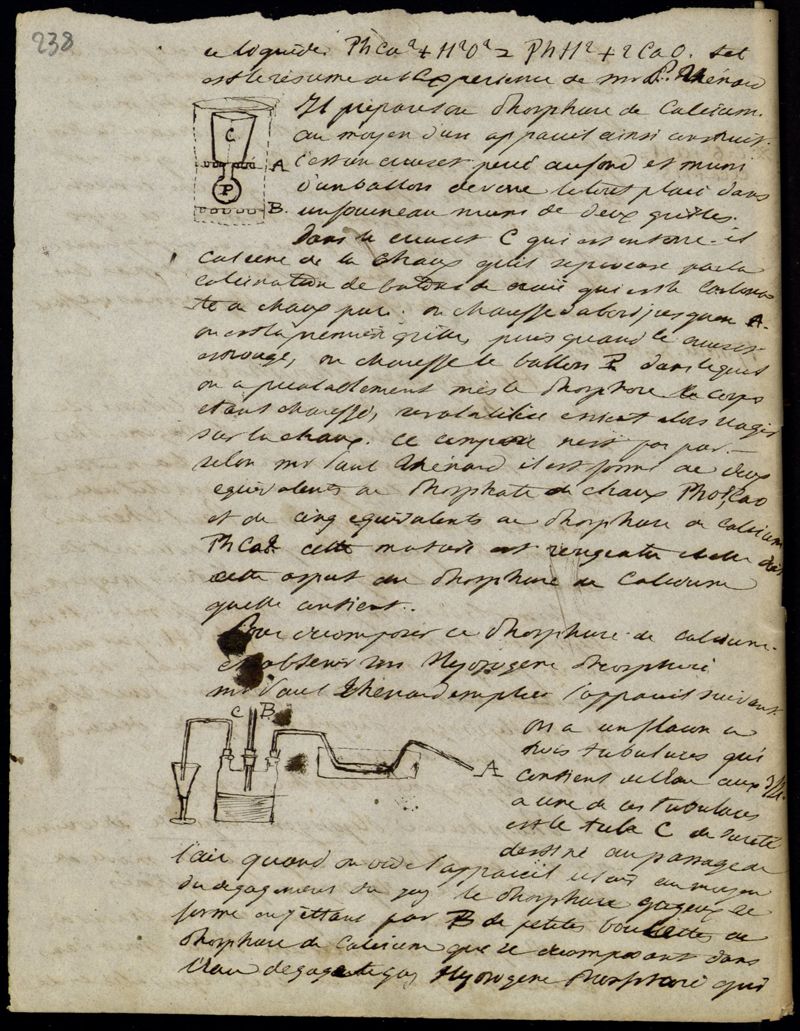 238
ce liquide. PhCa² + H²O² = PhH² + 2CaO. tel
est le résumé de l'Experience de mr P. Thénard
Il prépare son Phosphure de Calcium.
au moyen d'un appareil ainsi construit.
C'est un creuset percé au fond et muni
d'un ballon de verre le tout placé dans
un fourneau muni de deux grilles.
C
A
P
B.
Dans le creuset C qui est en terre. il
calcine de la chaux qu'il se procure par la
calcination de batons de craie qui est le carbona
te de chaux pur. on chauffe d'abord jusqu'en A.
ou est la première grille, puis quand le creuset
est rouge, on chauffe le ballon P dans lequel
on a préalablement mis le Phosphore. Le corps
étant chauffé, se volatilise et vient alors réagir
sur la chaux. Ce composé n'est pas pur.
selon mr Paul Thénard il est formé de deux
équivalents de Phosphate de chaux PhO⁵,CaO
et de cinq equivalents de Phosphure de calcium
PhCa². cette matière est rougeatre et elle doit
cette aspect au Phosphure de Calcium
quelle contient.
Pour décomposer ce Phosphure de calcium.
et obtenir un Hydrogène Phosphoré
mr Paul Thénard emploie l'appareil suivant.
C B.
A
on a un flacon a
trois tubulures qui
contient de l'eau aux 3/4.
a une de ces tubulures
est le tube C de sureté
destiné au passage de
l'air quand on vide l'appareil et au moyen
du dégagement du gaz le Phosphure gazeux se
forme en jettant par B de petites boulettes de
Phosphure de Calcium que se décomposant dans
l'eau dégage le gaz Hydrogène Phosphoré qui